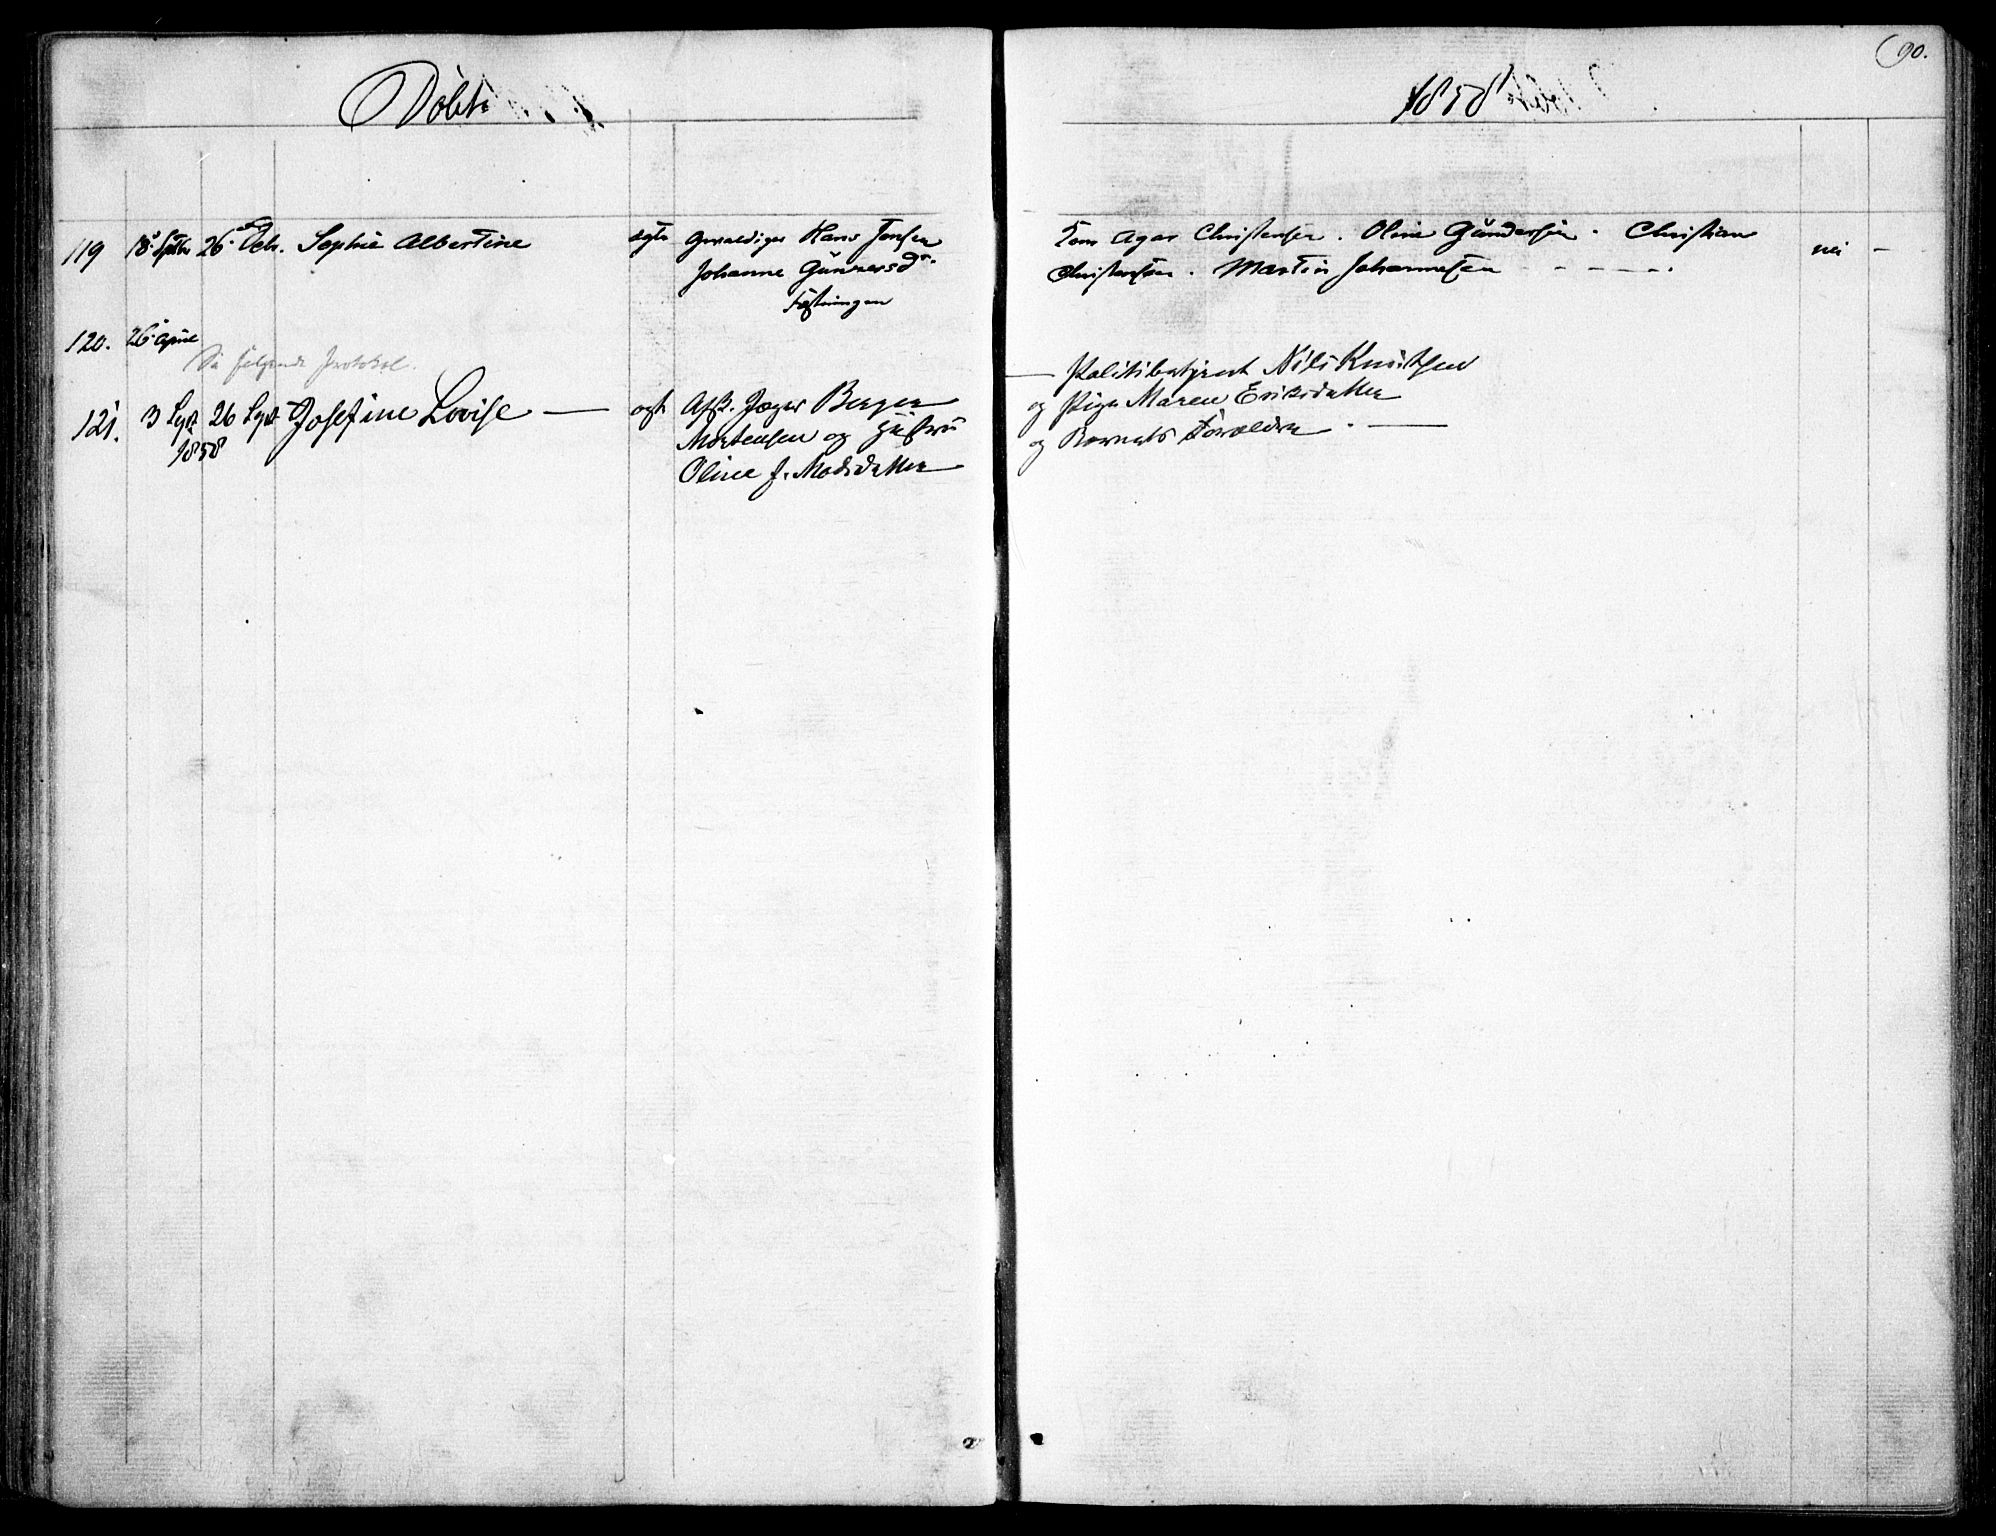 Døbte
1858
90.
119 18 Septbr 26 Octb. Sophie Albertine ægte Gevaldiger Hans Jensen
Johanne Gunnersd
Fæstningen
Christensen . Oline Gundersen . Christian
Christensen . Martin Johannesen - - - - - .
nei -
120. 26 April
Se følgende Protokol.
121. 3 Sept 26 Sept Josefine Lovise — ægt Afsk. Jæger Berger
1858
Mortensen og Hustru
Oline f. Madsdatter
— Politibetjent Nils Knutsen
og Pige Maren Eriksdatter
og Barnets Forældre . —